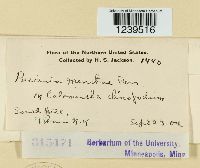 1239516
Flora of the Northern United States.
Collected by H. S. Jackson. 1440
Puccinia menthae Pers
on Calamintha clinopodium
N.Y.
Sept
315121
Herbarium of the University,
Minneapolis, Minn